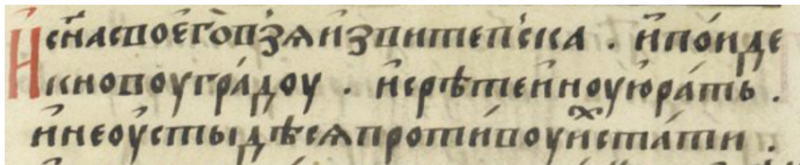 И҆ сн҃а своего̀ ѿпꙋ́зѧ и҆звитеп̾ска . и҆по́иде
кновоугра́доу . и҆срѣте и҆ноу́ю ра́ть .
и҆ неоу҆стыдѣсѧ проти́воу и҆́хъ ста́ти .